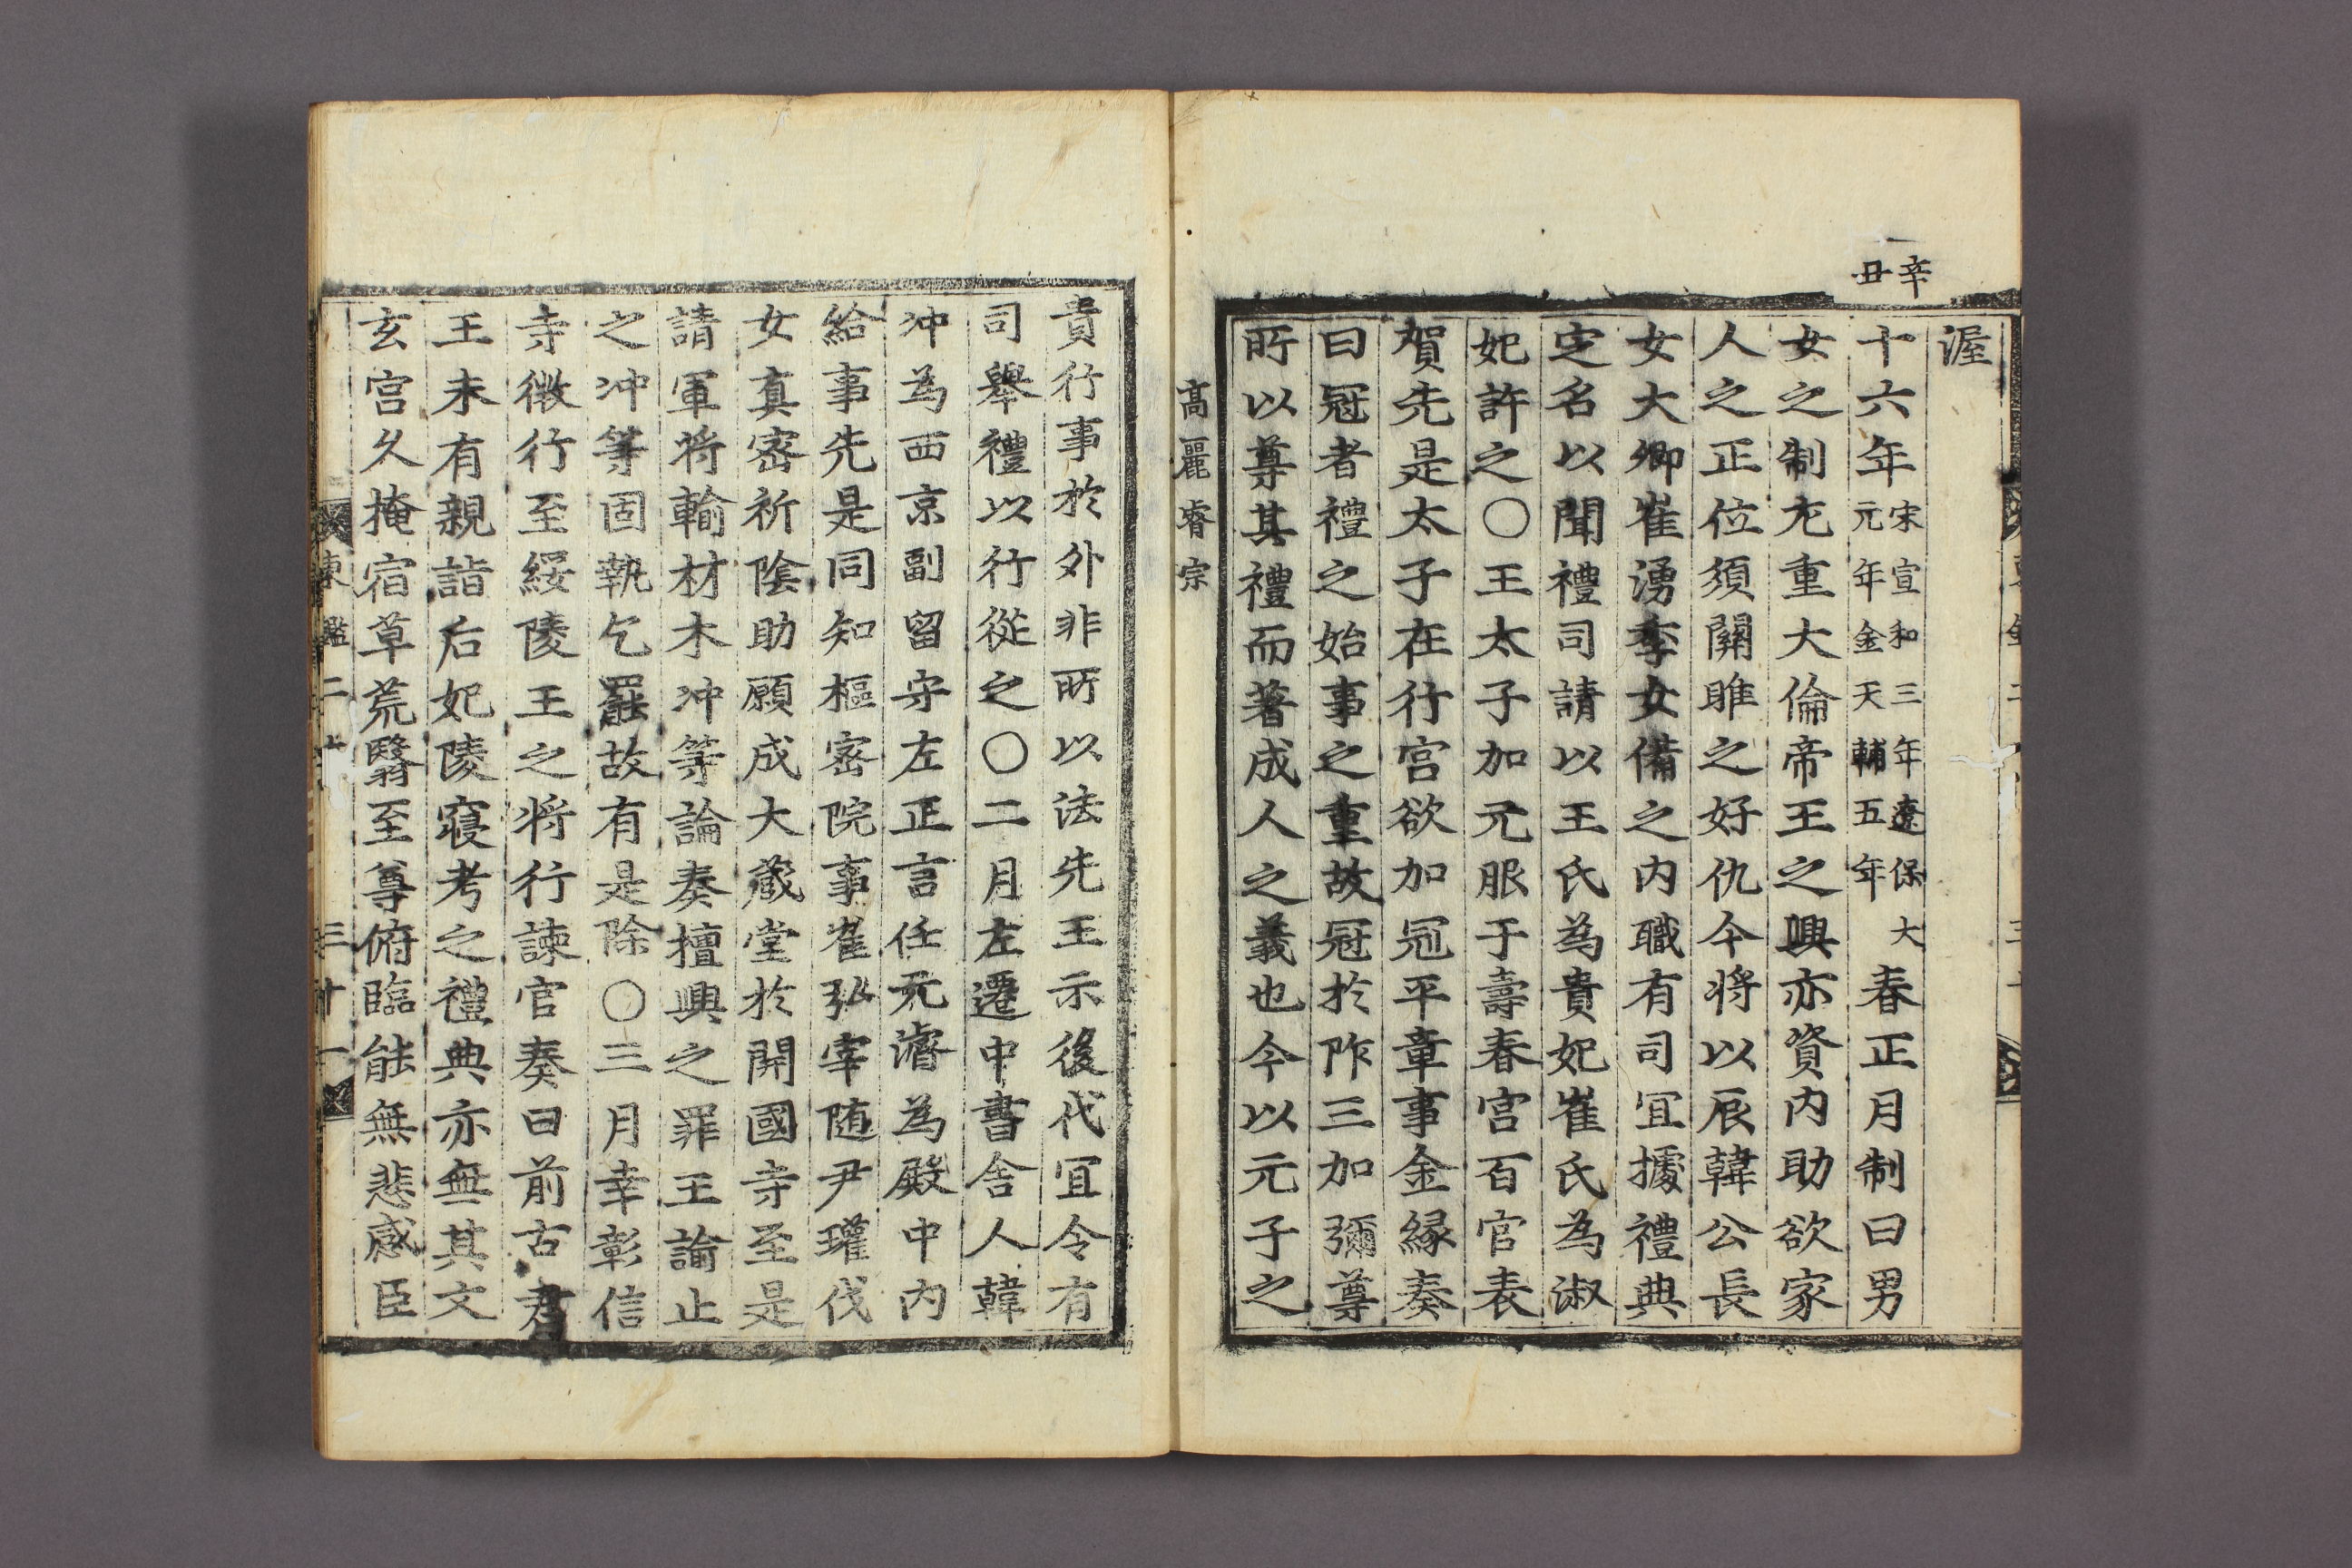 渥
辛丑
十六年宋宣和三年遼保大元年金天輔五年春正月制曰男
女之制尤重大倫帝王之興亦資内助欲家
人之正位須關雎之好仇今将以辰韓公長
女大卿崔湧季女備之内職有司冝據禮典
定名以聞禮司請以王氏為貴妃崔氏為淑
妃許之〇王太子加元服于壽春宮百官表
賀先是太子在行宮欲加冠平章事金縁奏
曰冠者禮之始事之重故冠於阼三加彌尊
所以尊其禮而著成人之義也今以元子之
高麗睿宗
貴行事於外非所以法先王示後代冝令有
司舉禮以行從之〇二月左遷中書舍人韓
冲為西京副留守左正言任元濬為殿中内
給事先是同知樞密院事崔弘宰随尹瓘伐
女真密祈陰助願成大蔵堂於開國寺至是
請軍将輸材木冲等論奏擅興之罪王諭止
之冲等固執乞罷故有是除〇三月幸彰信
寺微行至綏陵王之将行諫官奏曰前古君
王未有親詣后妃陵寢考之禮典亦無其文
玄宮久掩宿草荒翳至尊俯臨能無悲感臣
東鑑二十 三十一